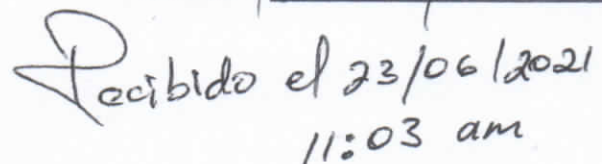 Recibido el 23/06/2021
11:03 am